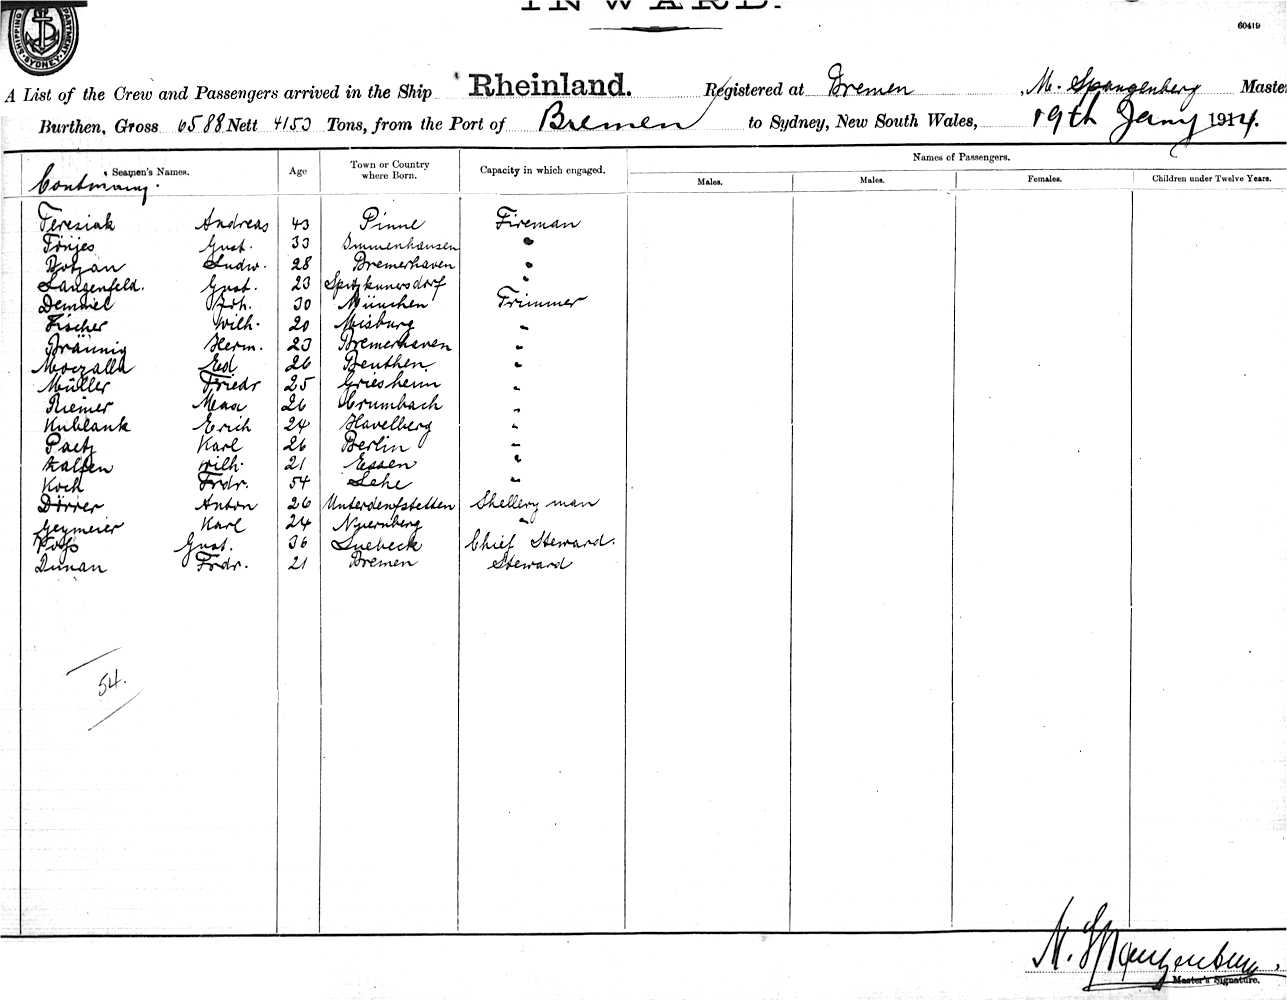 INWARD.
60419
SHIPPING DEPARTMENT SYDNEY
A List of the Crew and Passengers arrived in the Ship Rheinland. Registered at Bremen, M. Spangenberg Master
Burthen, Gross 6588 Nett 4153 Tons, from the Port of Bremen to Sydney, New South Wales, 19th Jany 1914.
Seamen's Names. Age Town or Country where Born. Capacity in which engaged. Names of Passengers.
Males. Males. Females. Children under Twelve Years.
Continuing.
Teresiak Andreas 43 Pinne Fireman
Tönjes Gust. 33 Immenhausen "
Botzan Ludw. 28 Bremerhaven "
Langenfeld. Gust. 23 Spitzkunersdorf "
Demmel Joh. 30 München Trimmer
Fischer Wilh. 20 Misburg "
Bräunig Herm. 23 Bremerhaven "
Moczalla Ed 26 Beuthen "
Müller Friedr 25 Griesheim "
Riemer Max 26 Crumbach "
Kuhlank Erich 24 Havelberg "
Paetz Karl 26 Berlin "
Kalfen Wilh. 21 Essen "
Koch Frdr. 54 Lehe "
Dörrer Anton 26 Unterdenfstetten Shellery man
Geymeier Karl 24 Nuernberg "
Voss Gust. 36 Luebeck Chief Steward.
Dunan Frdr. 21 Bremen Steward
54.
M. Spangenberg
Master's Signature.